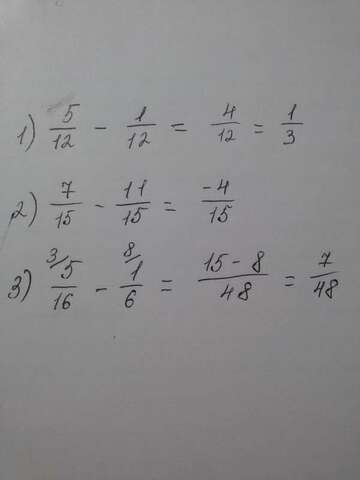 1) 5/12 - 1/12 = 4/12 = 1/3
2) 7/15 - 11/15 = -4/15
3) 3/ 5/16 - 8/ 1/6 = 15-8/48 = 7/48